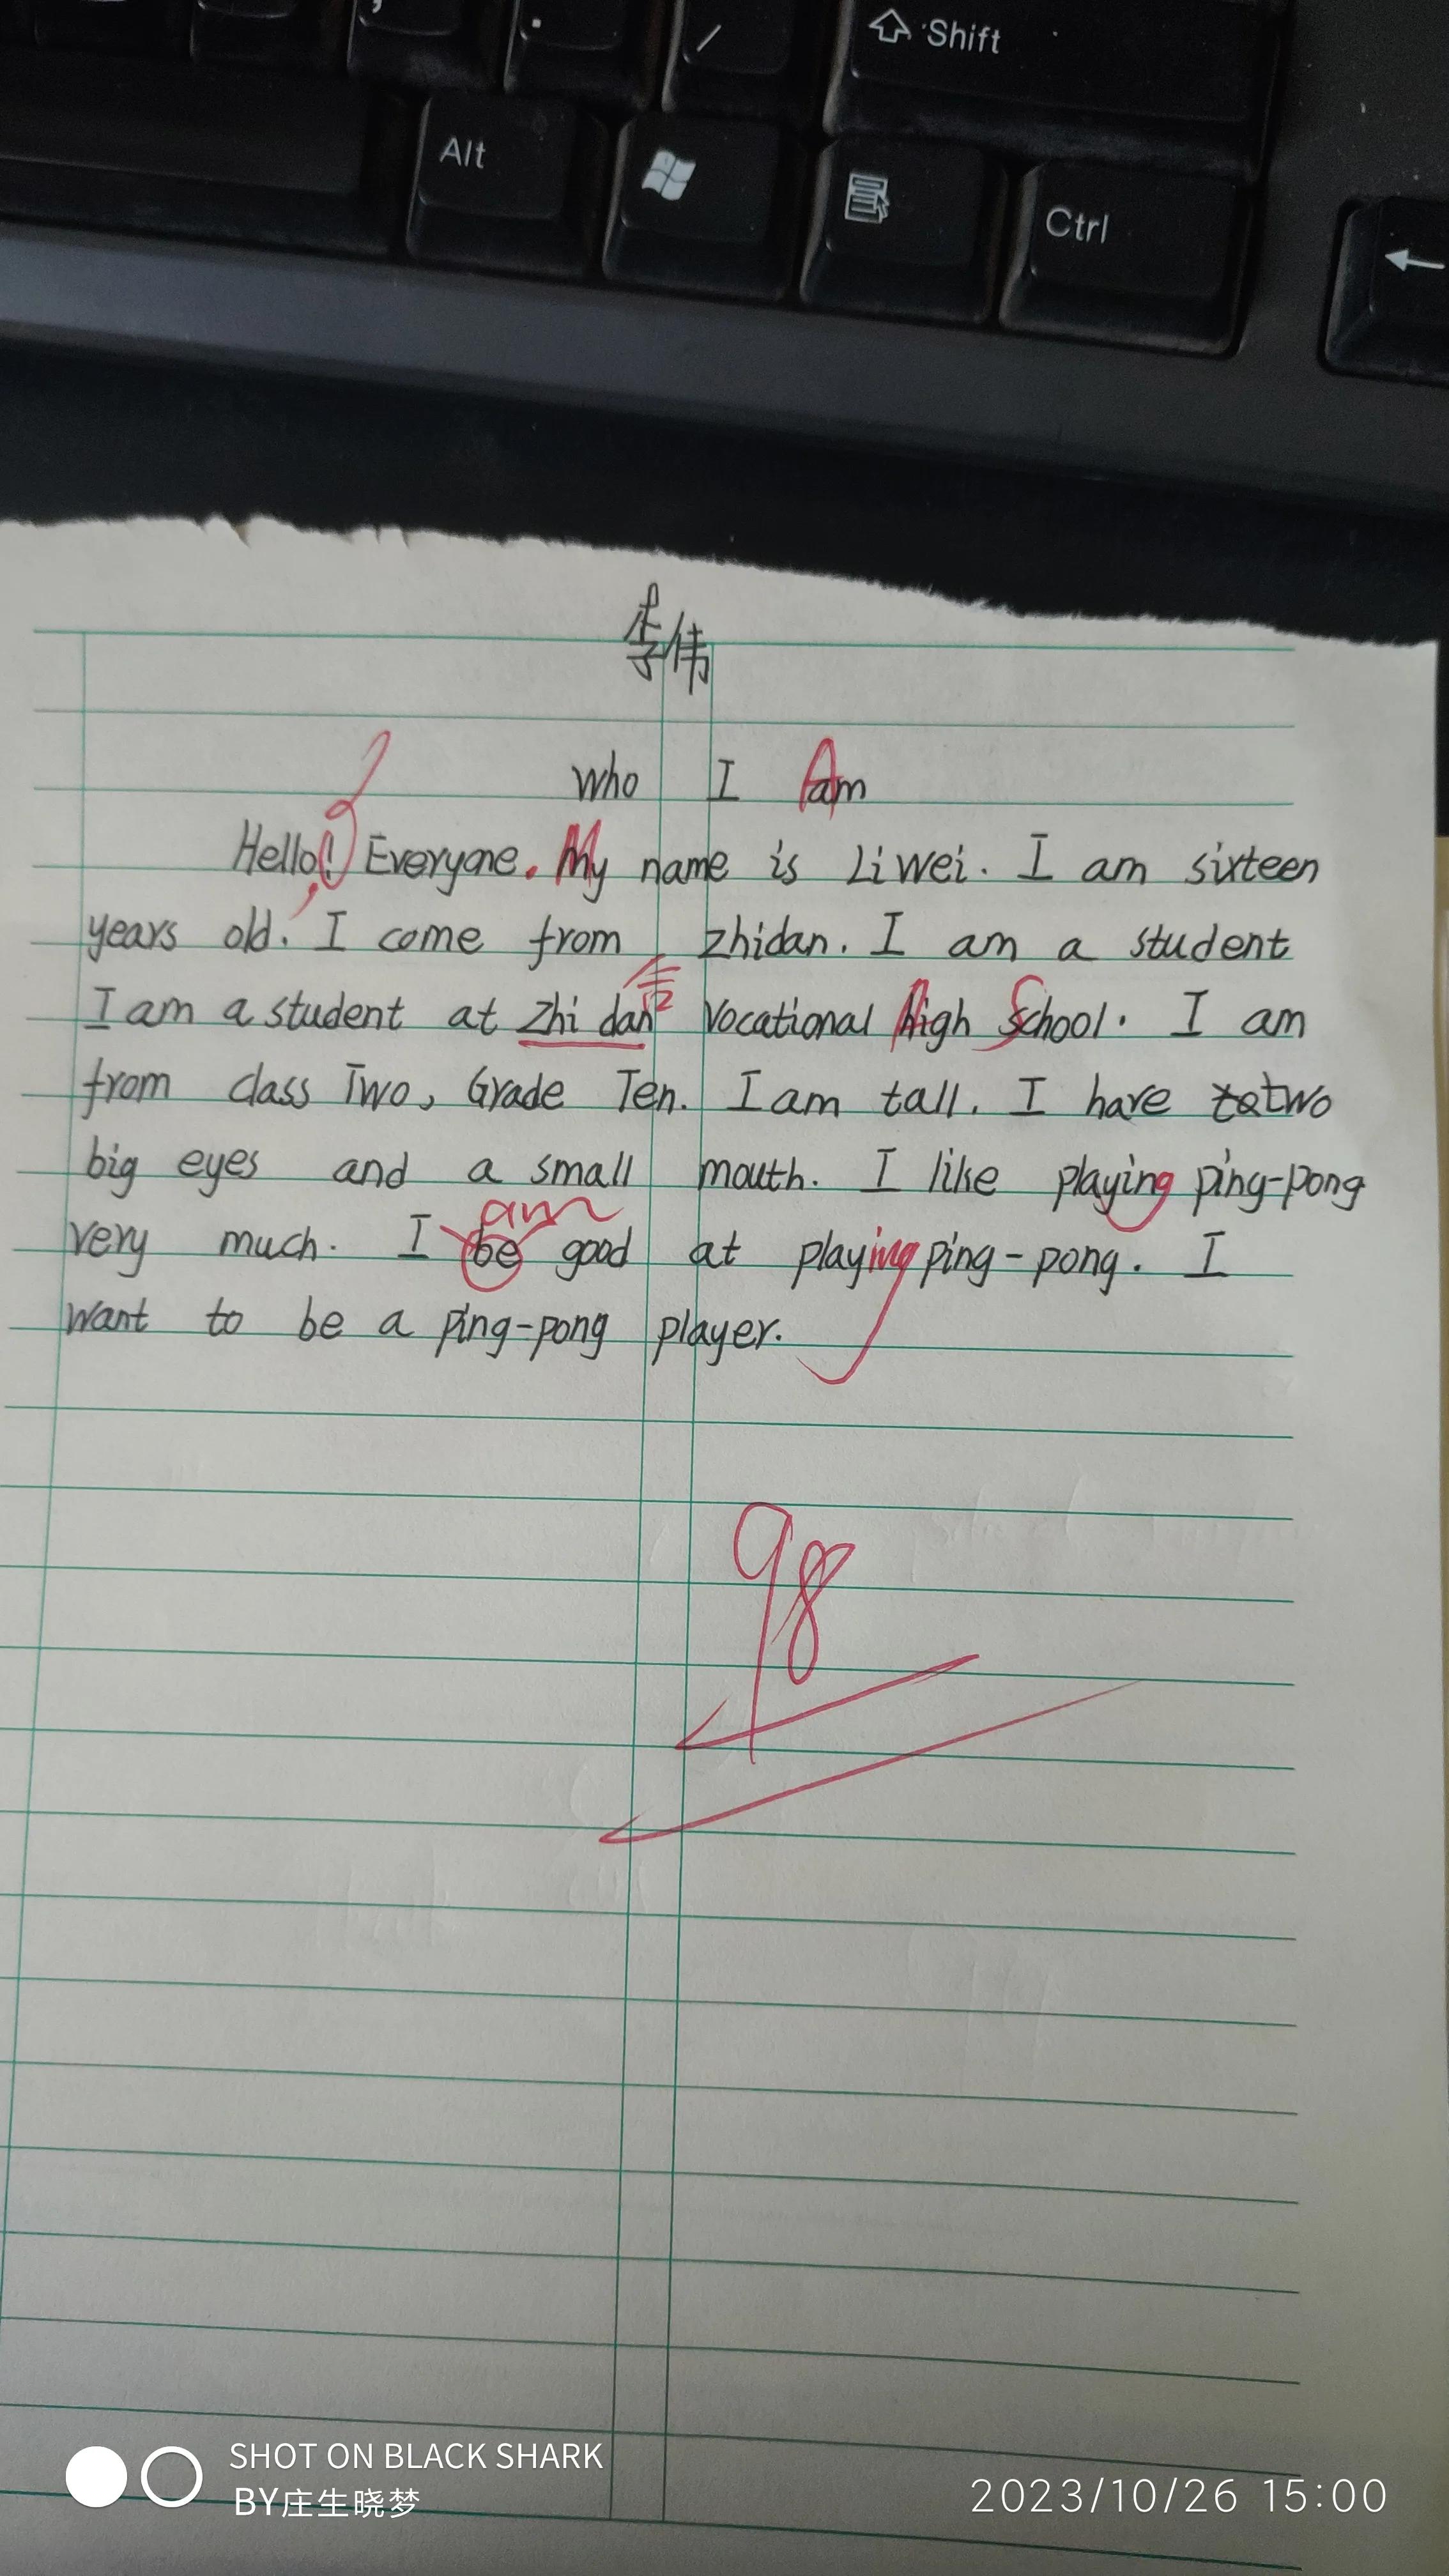 Shift
Alt
Ctrl
李伟
Who I Am
Hello! Everyone. My name is Li Wei. I am sixteen
years old. I come from zhidan. I am a student
I am a student at Zhi dan Vocational High School. I am
from class Two, Grade Ten. I am tall. I have two
big eyes and a small mouth. I like playing ping-pong
am
very much. I be good at playing ping-pong. I
want to be a ping-pong player.
98
SHOT ON BLACK SHARK
BY庄生晓梦
2023/10/26 15:00